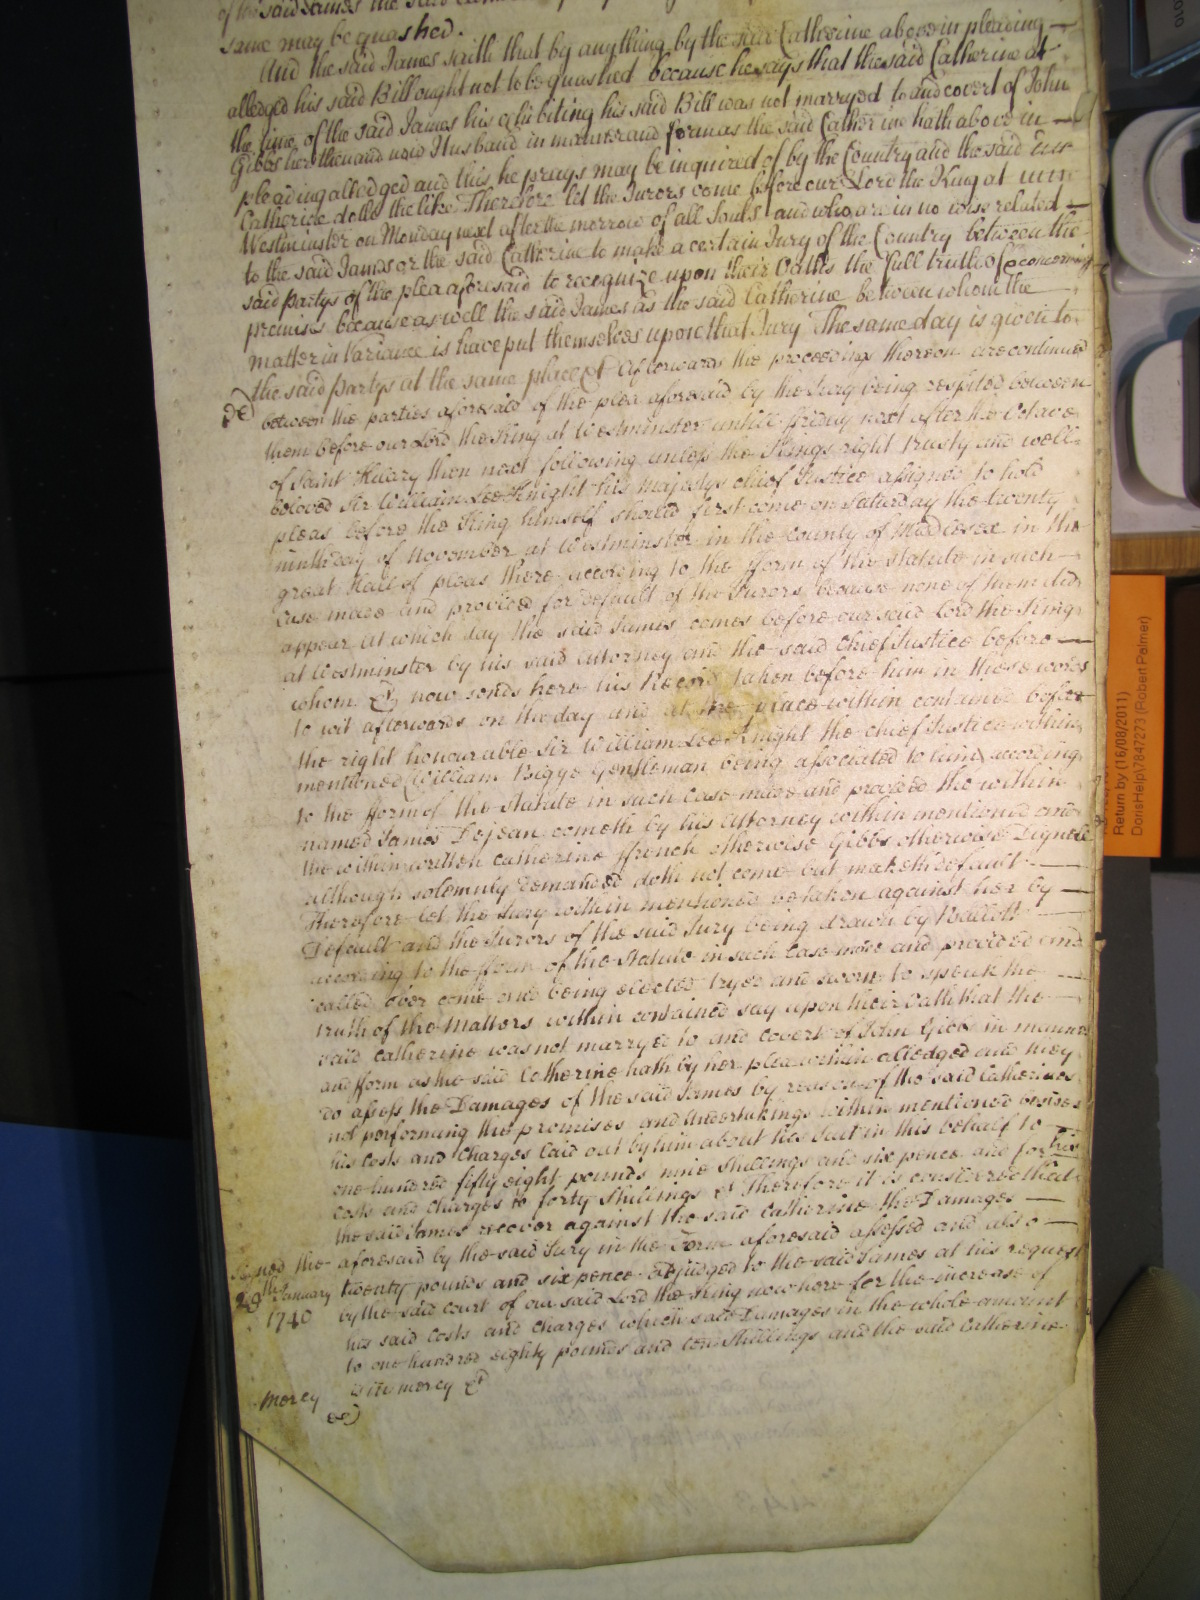 of the said James the said
same may be quashed.
And the said James saith that by any thing by the said Catherine above in pleading
alledged his said Bill ought not to be quashed because he says that the said Catherine at
the time of the said James his exhibiting his said Bill was not marryed to and covert of John
Gibbs her then and now Husband in manner and form as the said Catherine hath above in
pleading alledged and this he prays may be inquired of by the Country and the said
Catherine doth the like Therefore let the Jurors come before our Lord the King at
Westminster on Monday next after the morrow of all Souls and who are in no wise related
to the said James or the said Catherine to make a certain Jury of the Country between the
said partys of the plea aforesaid to recognize upon their Oaths the full truth of & concerning
premises because as well the said James as the said Catherine between whom the
matter in Variance is have put themselves upon that Jury The same day is given to
the said partys at the same place &c Afterwards the proceedings thereon are continued
between the parties aforesaid of the plea aforesaid by the Jury being respited between
them before our Lord the King at Westminster untill Friday next after the Octave
of Saint Hilary then next following unless the Kings right trusty and well
beloved Sir William Lee Knight his Majestys chief Justice assigned to hold
pleas before the King himself should first come on Saturday the twenty
ninth day of November at Westminster in the County of Middlesex in the
great Hall of pleas there according to the fform of the Statute in such
case made and provided for default of the Jurors because none of them did
appear At which day the said James comes before our said Lord the King
at Westminster by his said Attorney and the said Chief Justice before
whom &c now sends here his Record taken before him in these words
to wit afterwards on the day and at the place within contained before
the right honourable Sir William Lee Knight the chief Justice within
mentioned William Bigge Gentleman being associated to him according
to the fform of the Statute in such case made and provided the within
named James Dejean cometh by his Attorney within mentioned and
the within written Catherine ffrench otherwise Gibbs otherwise Lignell
although solemnly demanded doth not come but maketh default
Therefore let the Jury within mentioned be taken against her by
Default and the Jurors of the said Jury being drawn by Ballott
according to the fform of the Statute in such case made and provided and
called over come and being elected tryed and sworn to speak the
truth of the Matters within contained say upon their Oath that the
said Catherine was not marryed to and covert of John Gibbs in manner
and fform as the said Catherine hath by her plea within alledged and they
do assess the Damages of the said James by reason of the said Catherines
not performing the promises and Undertakings within mentioned besides
his Costs and Charges laid out by him about his Suit in this behalf to
one hundred fifty eight pounds nine Shillings and six pence and for his
costs and charges to forty Shillings &c Therefore it is considered that
the said James recover against the said Catherine the Damages
Signed the aforesaid by the said Jury in the Form aforesaid assessed and also
28th January twenty pounds and six pence adjudged to the said James at his request
1740 by the said court of our said Lord the King now here for the increase of
his said Costs and Charges which said Damages in the whole amount
to one hundred eighty pounds and ten Shillings and the said Catherine
Mercy in mercy &c
Return by (16/08/2011)
DorisHelp\7847273 (Robert Palmer)